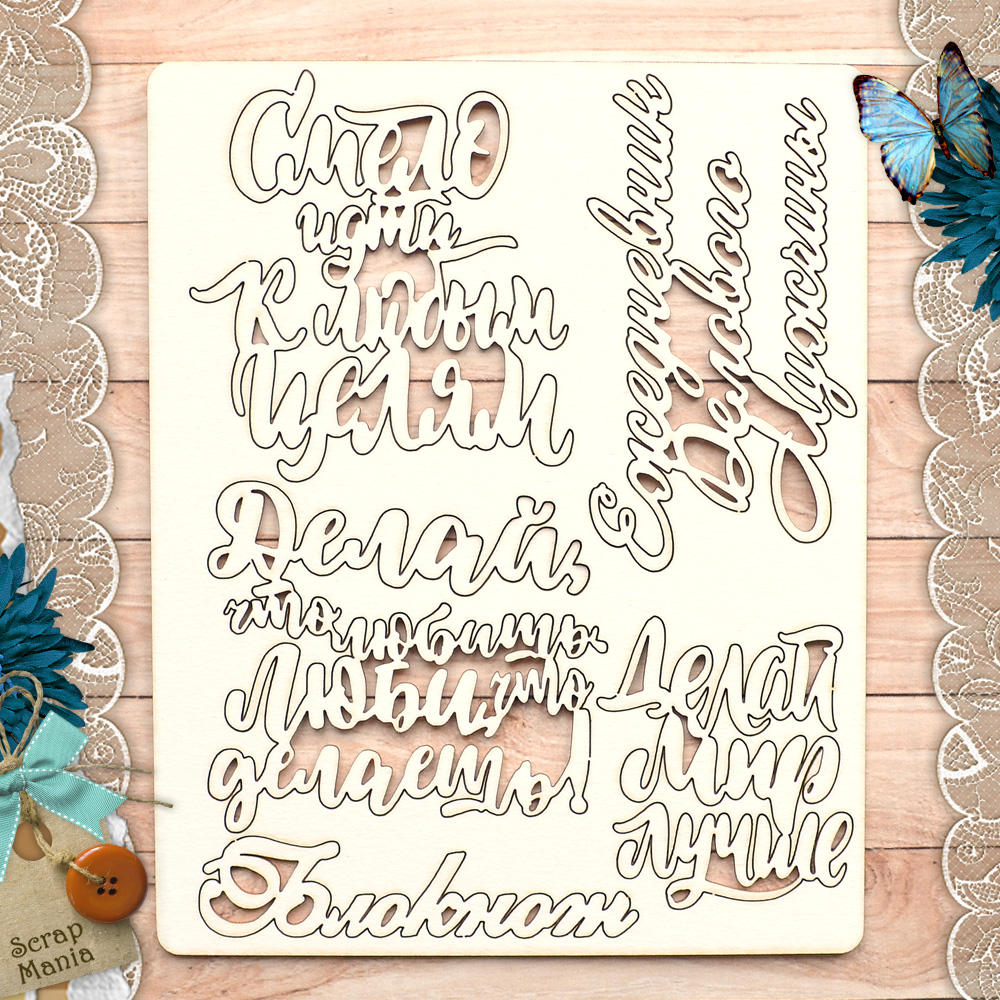 Смело
идти
К любым
Целям
Ежедневник
Делового
Мужчины
Делай,
что любишь
Люби, что
делаешь!
Делай
Мир
лучше
Блокнот
Scrap
Mania